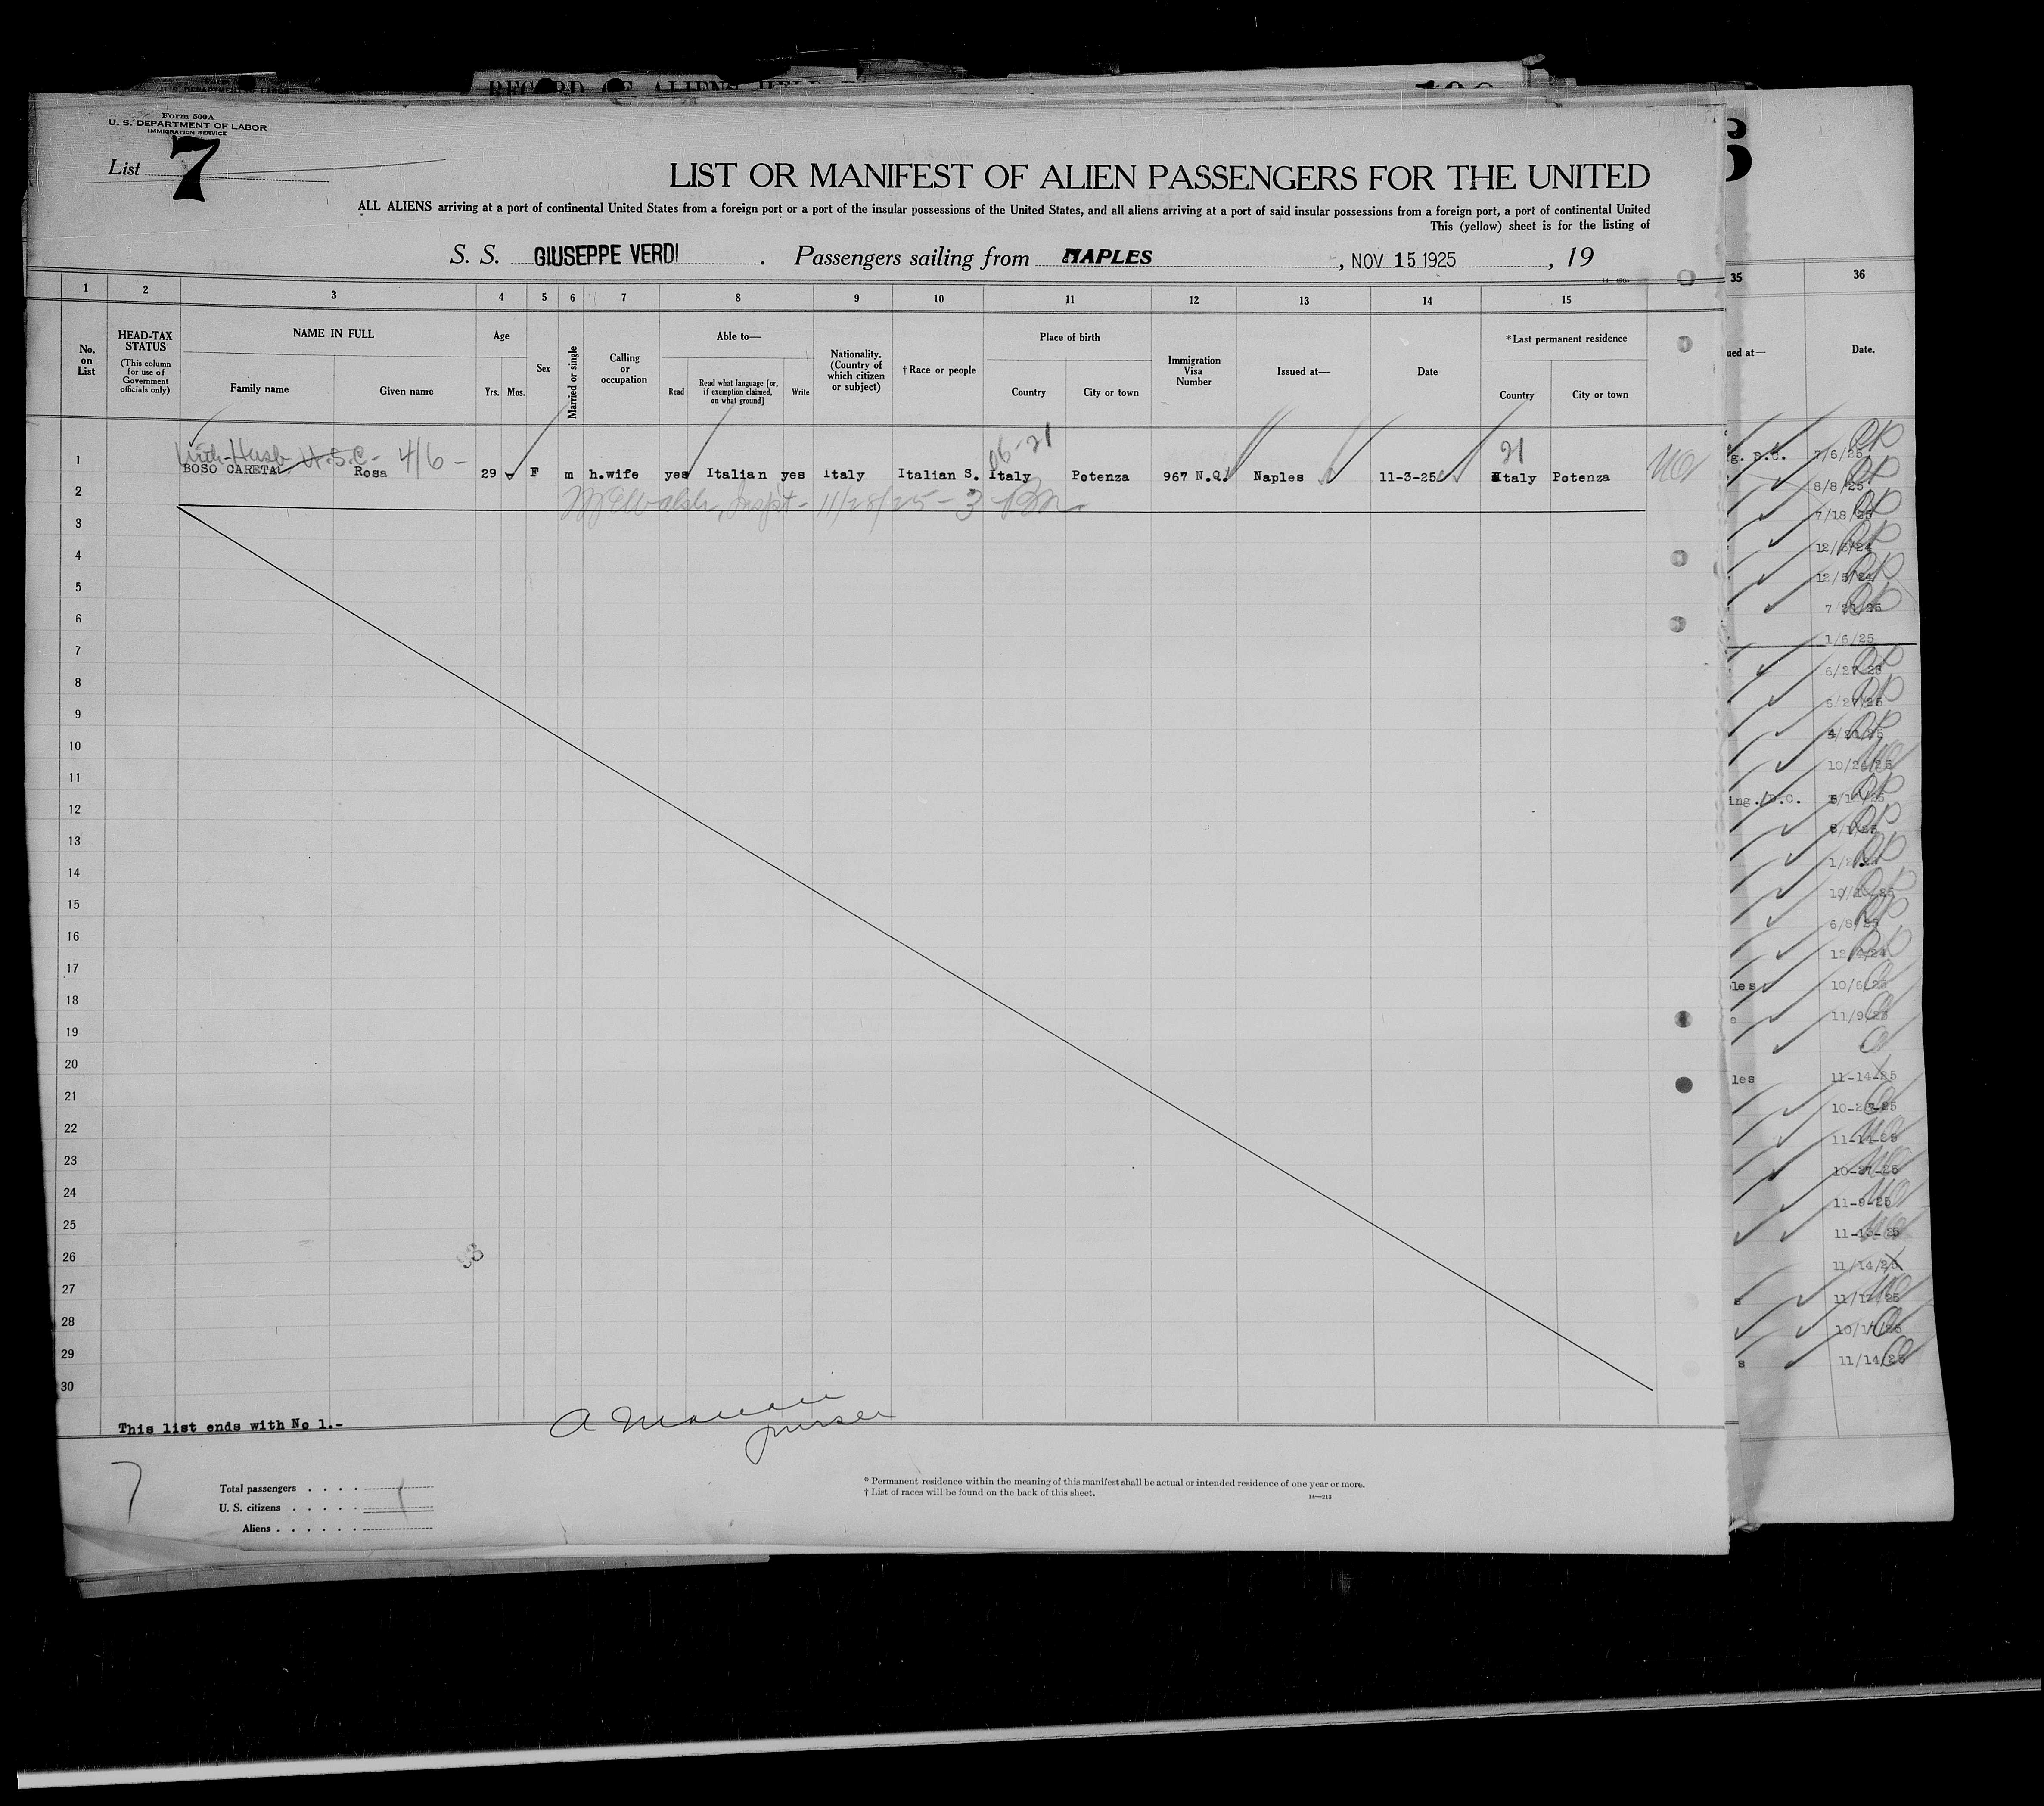 RECORD OF ALIENS HELD
Form 500A
U. S. DEPARTMENT OF LABOR
IMMIGRATION SERVICE
List 7
LIST OR MANIFEST OF ALIEN PASSENGERS FOR THE UNITED
ALL ALIENS arriving at a port of continental United States from a foreign port or a port of the insular possessions of the United States, and all aliens arriving at a port of said insular possessions from a foreign port, a port of continental United
This (yellow) sheet is for the listing of
S. S. GIUSEPPE VERDI. Passengers sailing from NAPLES, NOV 15 1925, 19
1 2 3 4 5 6 7 8 9 10 11 12 13 14 15
No. on List
HEAD-TAX STATUS
(This column for use of Government officials only)
NAME IN FULL
Family name Given name
Age
Yrs. Mos.
Sex
Married or single
Calling or occupation
Able to—
Read Read what language [or, if exemption claimed, on what ground] Write
Nationality. (Country of which citizen or subject)
†Race or people
Place of birth
Country City or town
Immigration Visa Number
Issued at—
Date
*Last permanent residence
Country City or town
With Husb U.S.C. - 4/6 - 06-21 21
1 BOSO CARETA Rosa 29 F m h.wife yes Italian yes Italy Italian S. Italy Potenza 967 N.Q. Naples 11-3-25 Italy Potenza
2
11/28/25 - 3
3
4
5
6
7
8
9
10
11
12
13
14
15
16
17
18
19
20
21
22
23
24
25
26
27
28
29
30
This list ends with No 1.-
purser
7
Total passengers
U. S. citizens
Aliens
* Permanent residence within the meaning of this manifest shall be actual or intended residence of one year or more.
† List of races will be found on the back of this sheet.
14—213
35 36
ued at— Date.
g. D.C. 7/6/25
8/8/25
7/18/25
12/5/24
1/6/25
6/27/25
6/27/25
ing. D.C.
6/8/25
les 10/6/25
11/9/25
les 11-14-25
11-14-25
10-27-25
11-9-25
11/14/25
s 11/14/25